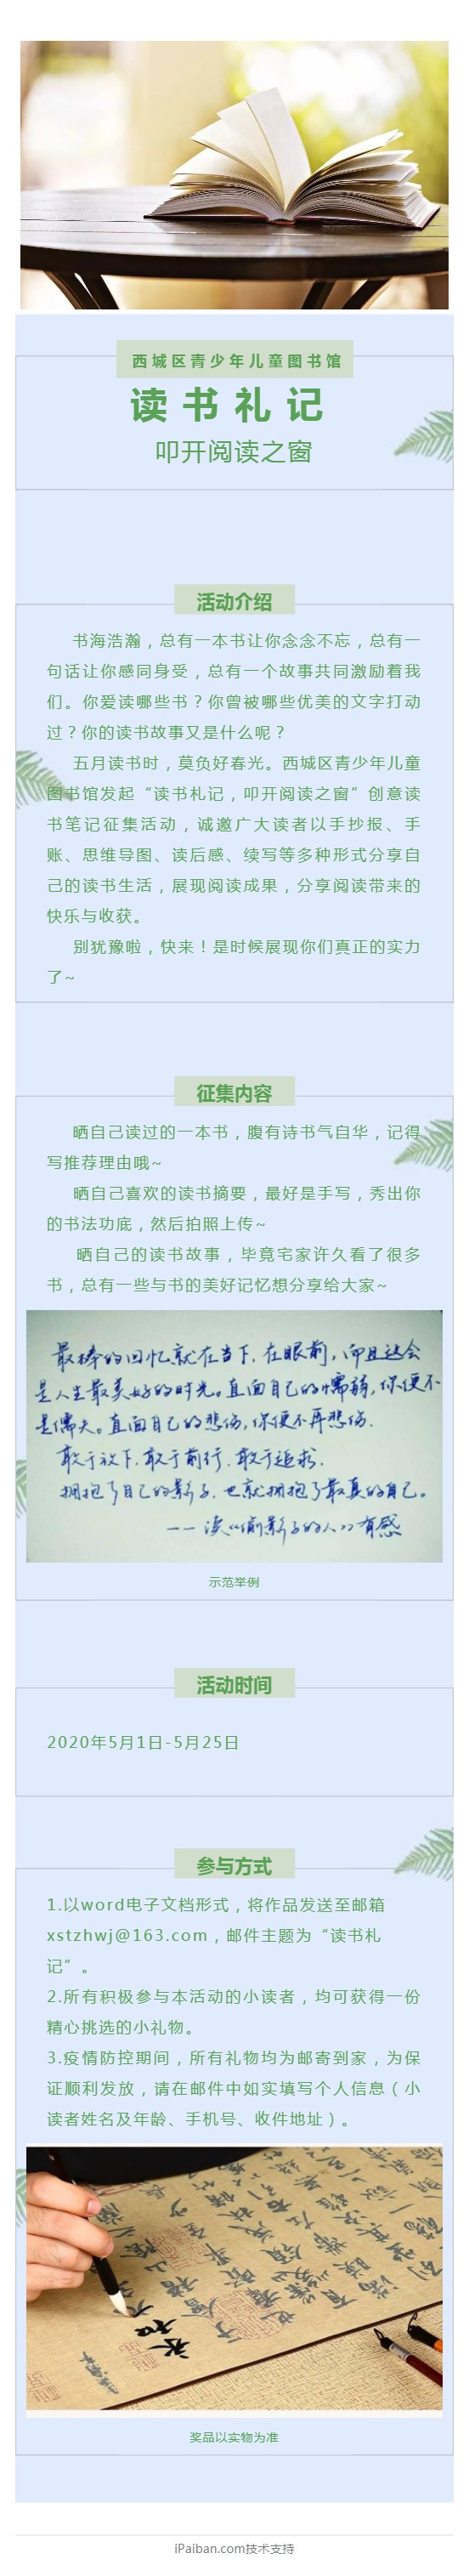 西城区青少年儿童图书馆
读书礼记
叩开阅读之窗
活动介绍
书海浩瀚，总有一本书让你念念不忘，总有一
句话让你感同身受，总有一个故事共同激励着我
们。你爱读哪些书？你曾被哪些优美的文字打动
过？你的读书故事又是什么呢？
五月读书时，莫负好春光。西城区青少年儿童
图书馆发起“读书札记，叩开阅读之窗”创意读
书笔记征集活动，诚邀广大读者以手抄报、手
账、思维导图、读后感、续写等多种形式分享自
己的读书生活，展现阅读成果，分享阅读带来的
快乐与收获。
别犹豫啦，快来！是时候展现你们真正的实力
了~
征集内容
晒自己读过的一本书，腹有诗书气自华，记得
写推荐理由哦~
晒自己喜欢的读书摘要，最好是手写，秀出你
的书法功底，然后拍照上传~
晒自己的读书故事，毕竟宅家许久看了很多
书，总有一些与书的美好记忆想分享给大家~
最棒的回忆就在当下，在眼前，而且这会
是人生最美好的时光。直面自己的懦弱，你便不
是懦夫。直面自己的悲伤，你便不再悲伤.
敢于放下，敢于前行，敢于追求.
拥抱了自己的影子，也就拥抱了最真的自己。
——读《偷影子的人》有感
示范举例
活动时间
2020年5月1日-5月25日
参与方式
1.以word电子文档形式，将作品发送至邮箱
xstzhwj@163.com，邮件主题为“读书札
记”。
2.所有积极参与本活动的小读者，均可获得一份
精心挑选的小礼物。
3.疫情防控期间，所有礼物均为邮寄到家，为保
证顺利发放，请在邮件中如实填写个人信息（小
读者姓名及年龄、手机号、收件地址）。
奖品以实物为准
iPaiban.com技术支持